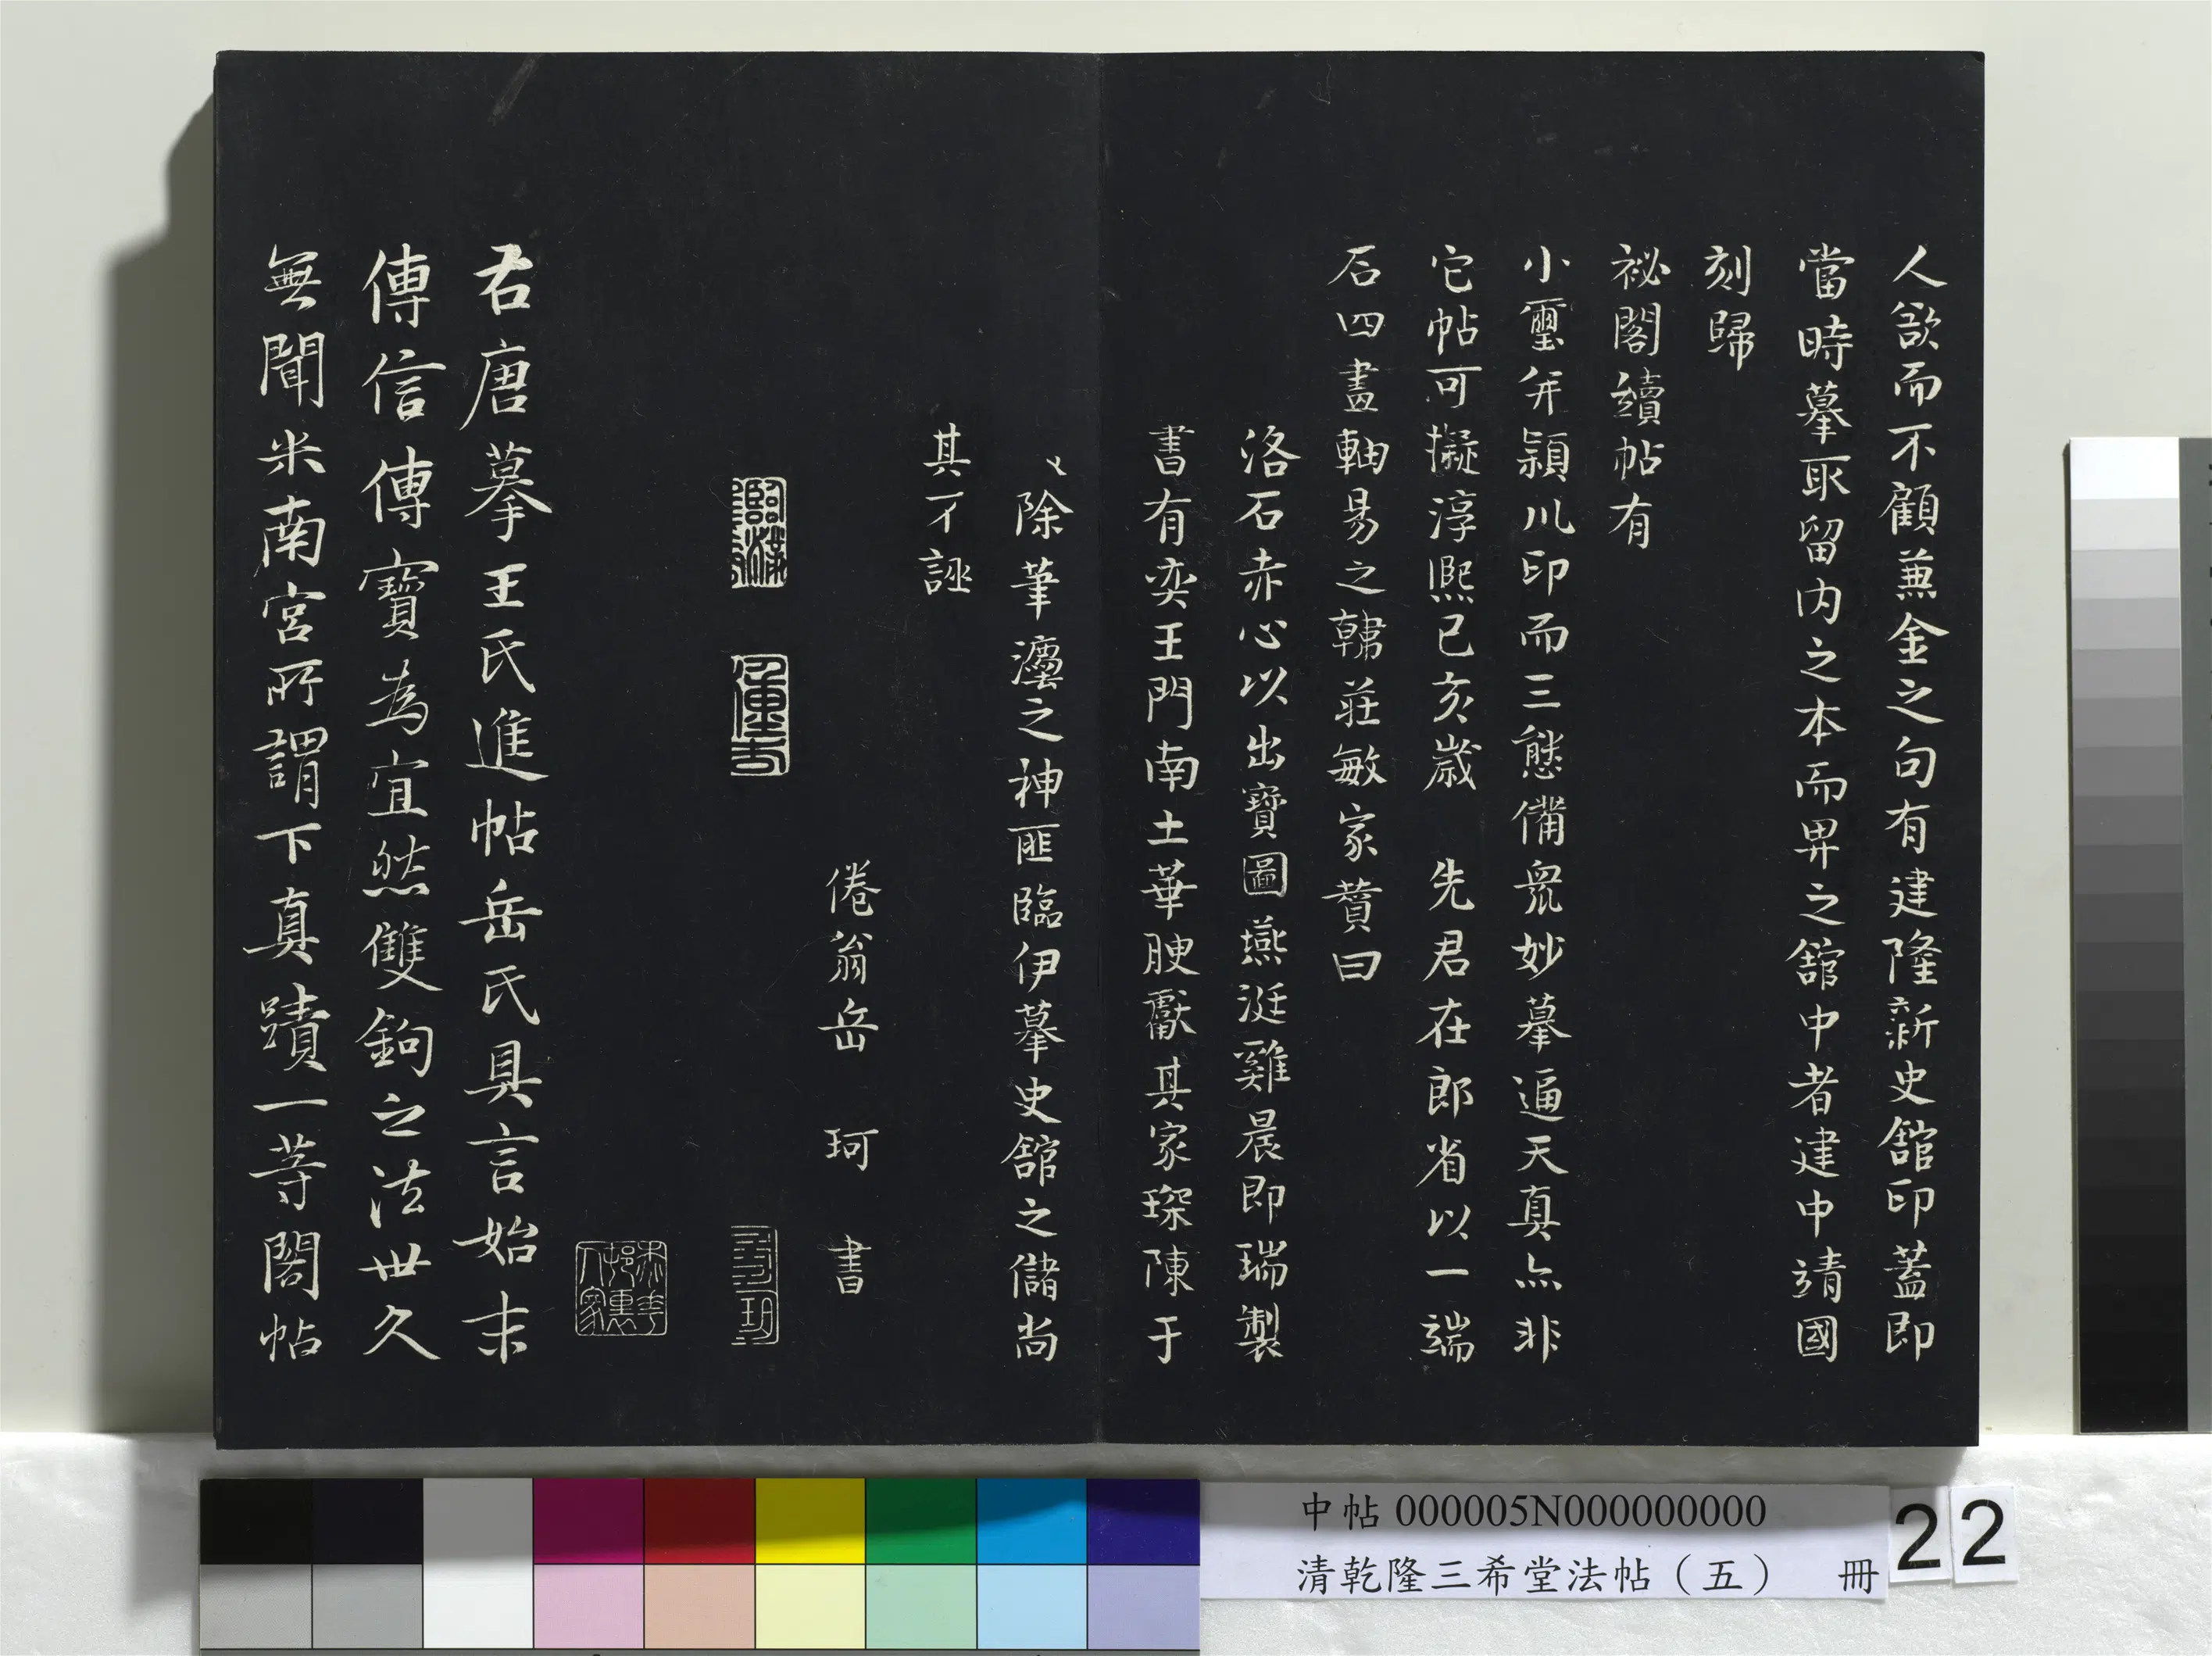 人欲而不顧蒹金之句有建隆新史館印蓋即
當時摹取留内之本而畀之館中者建中靖國
刻歸
祕閣續帖有
小璽并潁川印而三態備衆妙摹逼天真亦非
它帖可擬淳熙己亥歲 先君在郎省以一端
石四畫軸易之韓莊敏家贊曰
洛石赤心以出寶圖燕涎雞晨即瑞製
書有奕王門南土華腴獻其家琛陳于
除筆灋之神匪臨伊摹史館之儲尚
其不誣
倦翁岳珂書
右唐摹王氏進帖岳氏具言始末
傳信傳寶為宜然雙鉤之法世久
無聞米南宮所謂下真蹟一等閣帖
中帖 000005N000000000
清乾隆三希堂法帖(五) 冊
22